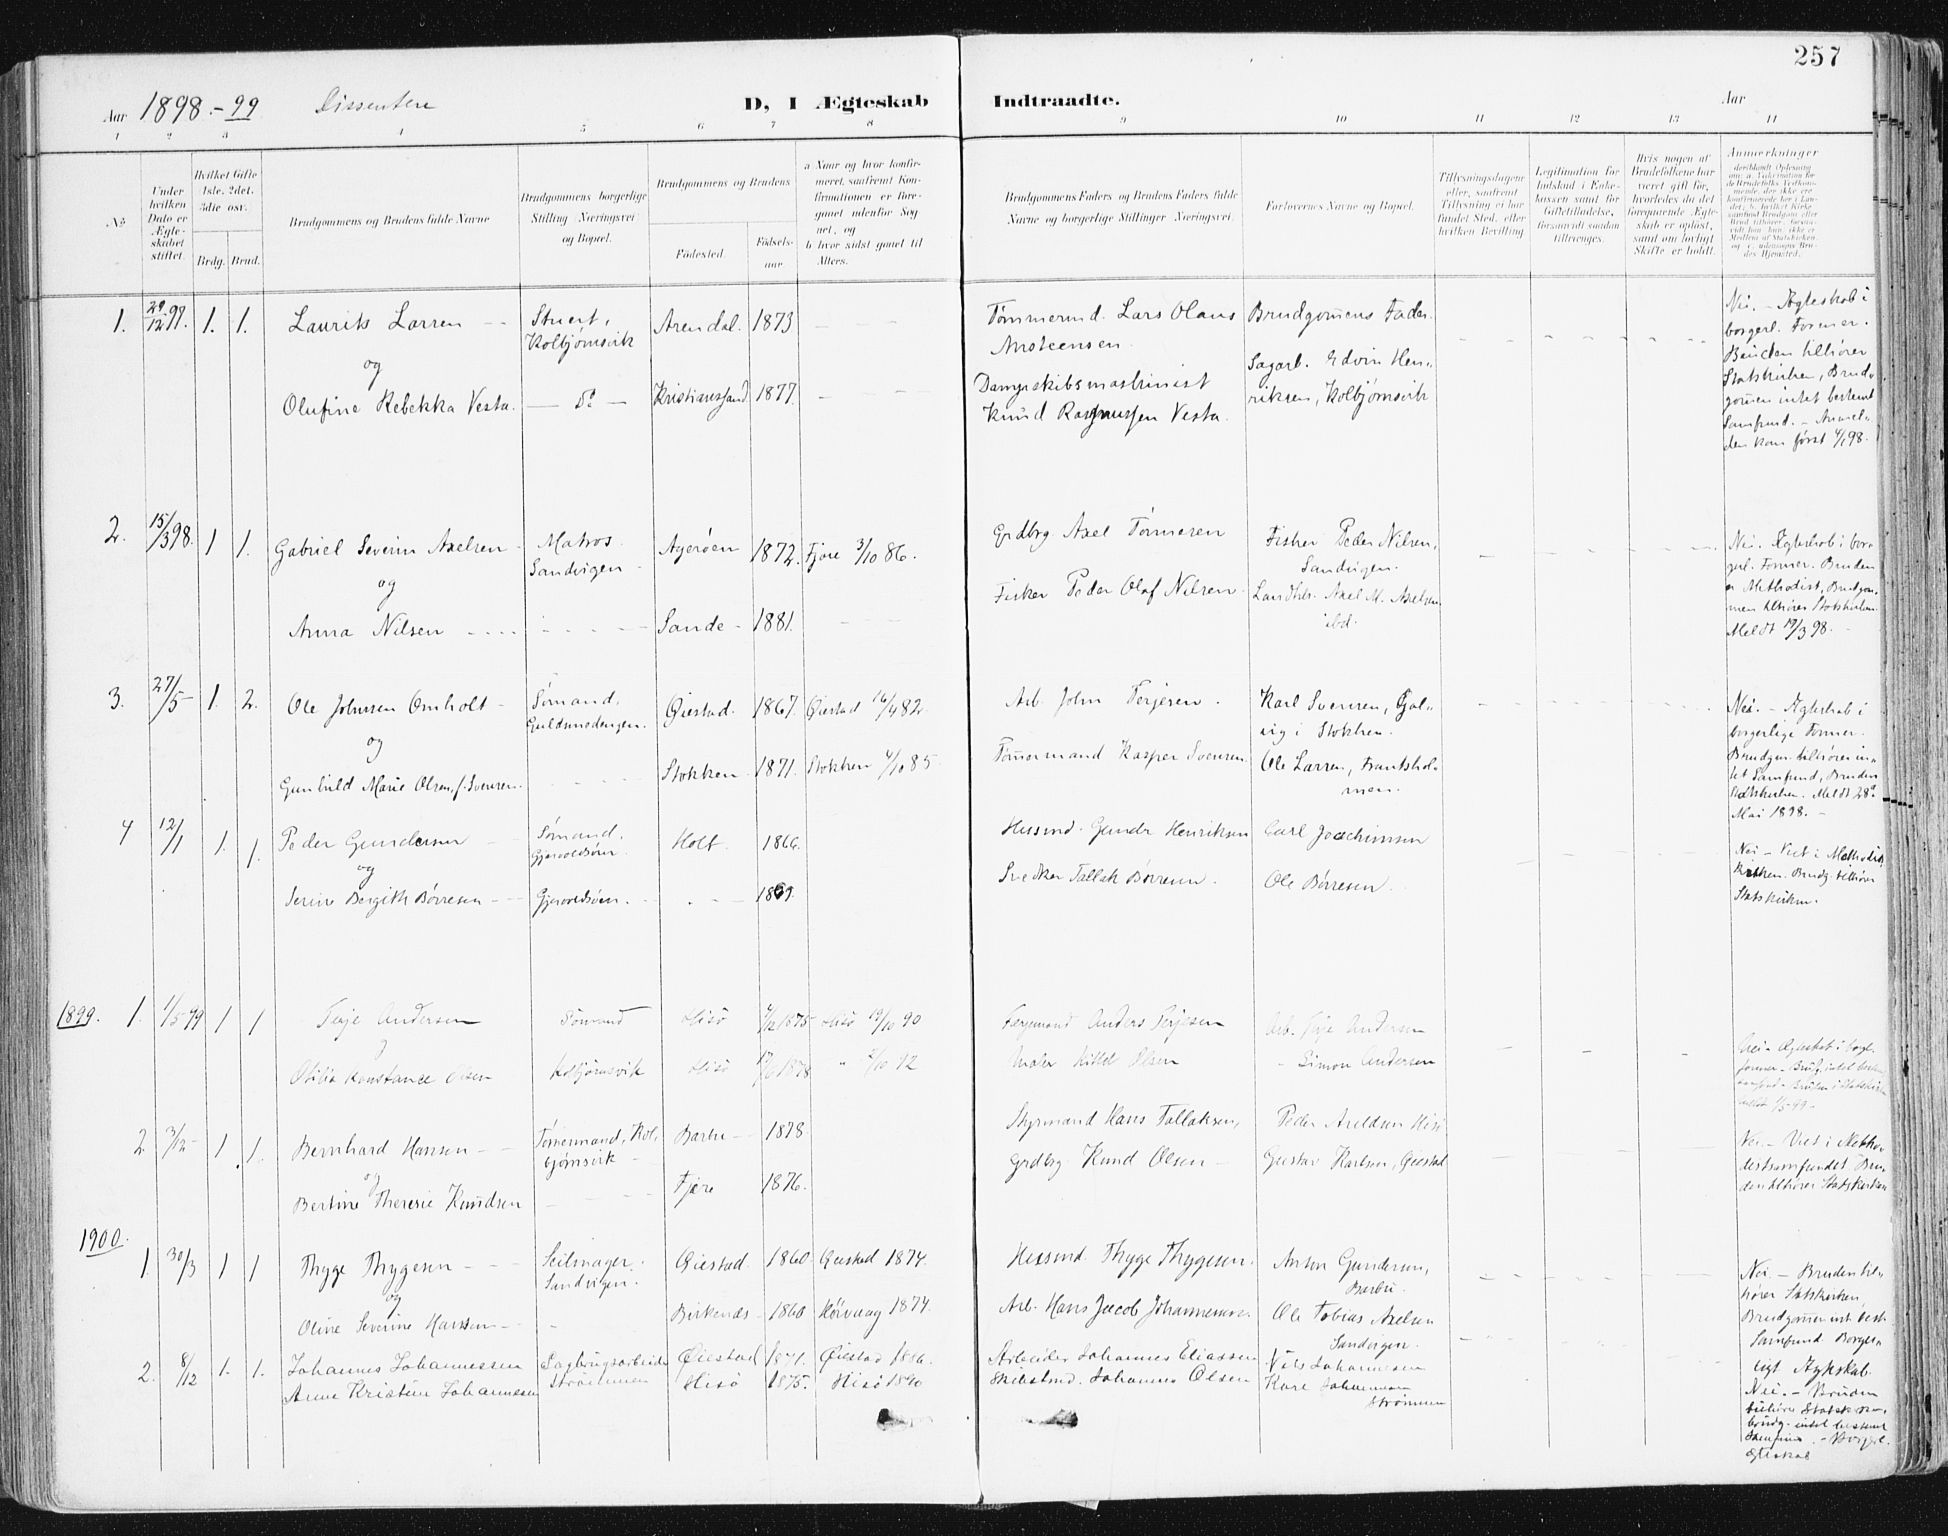 257
Aar 1898.-99 Dissentere D, I Ægteskab Indtraadte. Aar
1 2 3 4 5 6 7 8 9 10 11 12 13 14
No
Under hvilken Dato er Ægteskabet stiftet.
Hvilket Gifte 1ste. 2det. 3die osv.
Brdg. Brud.
Brudgommens og Brudens fulde Navne
Brudgommens borgerlige Stilling (Næringsvei) og Bopæl.
Brudgommens og Brudens
Fødested. Fødselsaar.
a Naar og hvor konfirmeret, saafremt Konfirmationen er foregaaet udenfor Sognet, og b hvor sidst gaaet til Alters.
Brudgommens Faders og Brudens Faders fulde Navne og borgerlige Stillinger (Næringsvei.
Forlovernes Navne og Bopæl.
Tillysningsdagene eller, saafremt Tillysning ei har fundet Sted, efter hvilken Bevilling.
Legitimation for Indskud i Enkekassen samt for Giftetilladelse, forsaavidt saadan tiltrænges.
Hvis nogen af Brudefolkene har været gift før, hvorledes da det foregaaende Ægteskab er opløst, samt om lovligt Skifte er holdt.
Anmerkninger
1. 29/12 97. 1. 1. Laurits Larsen Stuert, Kolbjørnsvik Arendal. 1873 Tømmermd. Lars Olaus Ansteensen. Brudgommens Fader.
og
Olufine Rebekka Vesta. do Kristianssand 1877. Dampskibsmaskinist Knud Rasmussen Vesta. Sagarb. Edvin Henriksen, Kolbjørnsvik
Nei. - Ægteskab i borgerl. Former. Bruden tilhører Statskirken, Brudgommen intet bestemt Samfund. - Anmelden kom først 4/1 98.
2. 15/3 98. 1 1. Gabriel Severin Axelsen Matros. Sandvigen Agerøen 1872. Fjære 3/10 86. Grdbrg Axel Tønnesen Fisker Peder Nilsen, Sandvigen.
og
Anna Nilsen Sande 1881. Fisker Peder Olaf Nilsen Axel M. Axelsen ibd.
Nei. Ægteskab i borgerl. Former. Bruden er Methodist, Brudgommen tilhører Statskirken. Meldt 19/3 98.
3. 27/5 1. 2. Ole Johnsen Omholt Sømand, Guldsmedengen. Øiestad. 1867. Øiestad 16/4 82 Arb. John Terjesen. Karl Svensen, i Stokken.
og
Gunhild Marie Olsen, f. Svensen. Stokken 1871. Stokken 4/10 85. Tømmermand Kasper Svensen Ole Larsen,
Nei. - Ægteskab i borgerlige Former. Brudgm. tilhører intet Samfund, Bruden Statskirken. Meldt 28de Mai 1898.
4 12/1 1. 1. Peder Gundersen Sømand, Gjervoldsøen. Holt. 1866. Husmd. Gundr Henriksen Carl Joachimsen
og
Serine Bergith Børresen Gjervoldsøen. 1869. Tallak Børresen. Ole Børresen.
Nei - Viet i Methodistkirken. Brudg. tilhører Statskirken.
1899. 1. 1/5 99 1 1 Terje Andersen Sømand Hisö 1875 Hisö 19/10 90 Færgemand Anders Terjesen Arb. Terje Andersen
Otilie Konstance Olsen Kolbjørnsvik Hisö 1878 " 2/10 92 Maler Kittel Olsen " Simon Andersen
2 3/12 1 1. Bernhard Hansen Tømmermand, Kolbjørnsvik Barbu 1878 Styrmand Hans Tallaksen, Peder Axeldsen Hisö
og
Bertine Theresie Knudsen Fjære 1876. Grdbrg. Knud Olsen Gustav Karlsen, Øiestad
Nei. - Viet i Methodistsamfundet. Bruden tilhører Statskirken
1900.
1. 30/3 1 1 Thyge Thygesen Seilmager. Sandvigen. Øiestad. 1860 Øiestad 1874. Husmd. Thyge Thygesen. Anton Gundersen, Barbu.
og
Oline Severine Hansen Birkenæs 1860 Høivaag 1874. Arb. Hans Jacob Johannessen Ole Tobias Axelsen Sandvigen.
Nei. - Bruden tilhører Statskirken, Brudgommen int. best. Samfund Borgerligt Ægteskab.
2. 8/12 1. 1. Johannes Johannessen Sagbrugsarbeider Strømmen Øiestad 1871. Øiestad 1886. Arbeider Johannes Eliassen Nils Johannessen
Anne Kristine Johannesen Hisö 1875. Hisö 1890 Skibstmd. Johannes Olsen Kare Johannesen Strømmen
Nei. - Bruden tilhører Statskirken, brudg. intet bestemt Samfund. - Borgerl. Ægteskab